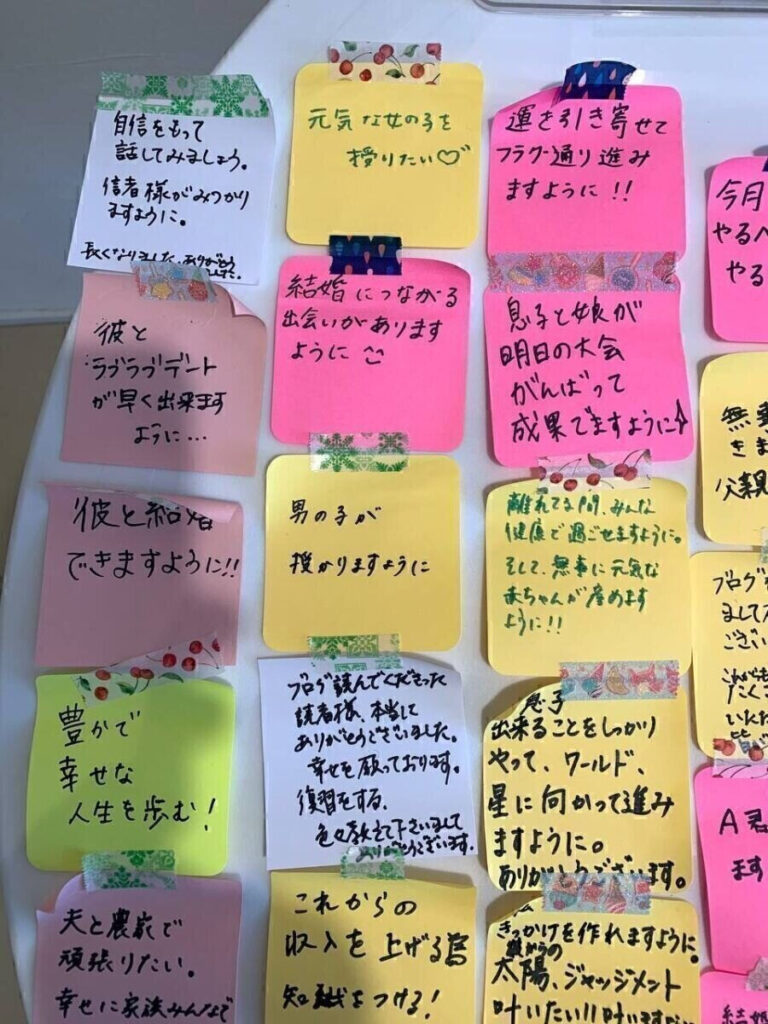 自信をもって
話してみましょう。
信者様がみつかり
ますように。
長くなりました。ありがとう
彼と
ラブラブデート
が早く出来ます
ように…
彼と結婚
できますように!!
豊かで
幸せな
人生を歩む!
夫と農家で
頑張りたい。
幸せに家族みんなで
元気な女の子を
授りたい♡
結婚につながる
出会いがあります
ように
男の子が
授かりますように
ブログ読んでくださった
読者様、本当に
ありがとうございました。
幸せを願っております。
復習をする。
色々教えて下さいまして
ありがとうございます。
これからの
収入を上げる為
知識をつける!
運を引き寄せて
フラグ通り進み
ますように!!
息子と娘が
明日の大会
がんばって
成果でますように♪
離れてる間、みんな
健康で過ごせますように。
そして、無事に元気な
赤ちゃんが産めます
ように!!
息子
出来ることをしっかり
やって、ワールド、
星に向かって進み
ますように。
ありがとうございます。
きっかけを作れますように。
太陽、ジャッジメント
叶いたい!!叶います
今月
やるべ
やる
無事
きま
父親
ブログ
まして
ござい
これからも
たくさ
いただ
A君
ます
結婚